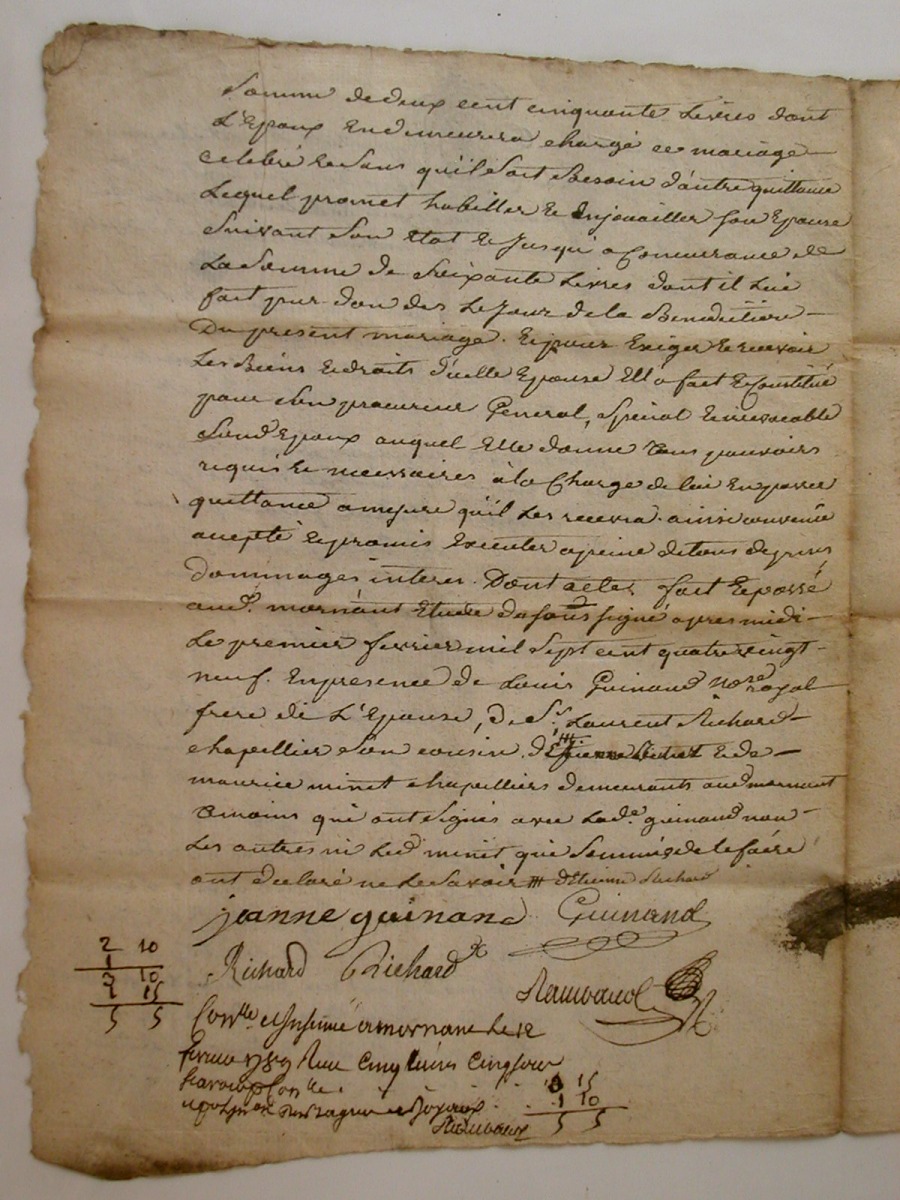 Somme de deux cent cinquante Livres dont
L'Epoux En demeurera chargé ce mariage
celebré Et Sans qu'il Soit Besoin d'autre quittance
Lequel promet habiller Et Enjouailler Son Epouse
Suivant Son Etat Et Jusqu'a Concurrance de
La Somme de Soixante Livres dont il Lui
fait pur don des Le Jour de la Benediction
Du present mariage. Et pour Exiger Et recevoir
Les Biens Et droits d'icelle Epouse Ell'a fait Et Constitué
pour Son procureur General, Special Et irrevocable
Led Epoux auquel Elle donne tous pouvoirs
requis Et necessaires à la Charge de lui En passer
quittance a mesure qu'il Les recevra. ainsi convenu
accepté Et promis Executer a peine de tous depens
Dommages interes. Dont acte, fait Et passé
aud. mornant Etude du Soussigné apres midi
Le premier fevrier mil Sept cent quatre vingt
neuf. En presence de Louis Guinand Nore royal
frere de L'Epouse, de Sr. Laurent Richard
chapellier Son cousin. Et de
maurice minet chapelliers demeurants aud mornant
temoins qui ont Signés avec Lade. guinand non
Les autres ni Led minet qui Sommés de le faire
ont declaré ne Le Savoir # d'Etienne Richard
jeanne guinand Guinand
Richard Richard
2 10
1
3 10
1 15
5 5
Conlle et Insinué a mornant Le 12
fevrier 1789 Recu Cinq Livres Cinq Sous
15
1 10
5 5